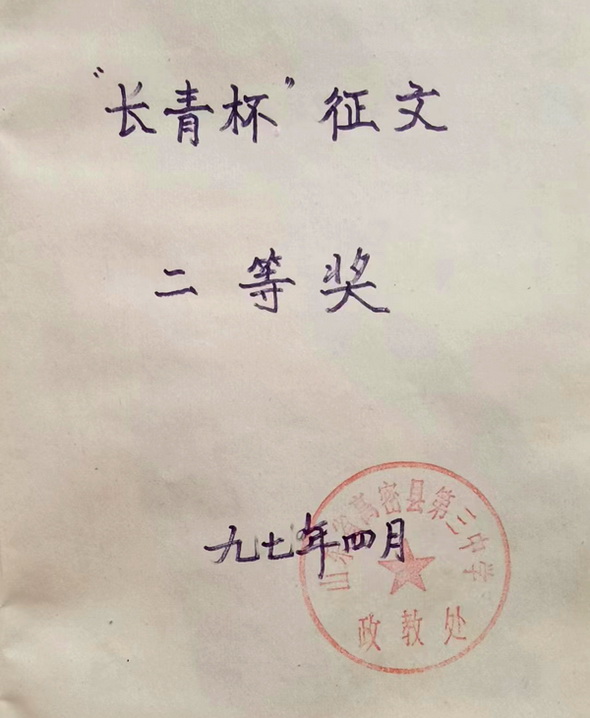 “长青杯”征文
二等奖
九七年四月
山东省高密县第三中学
政教处